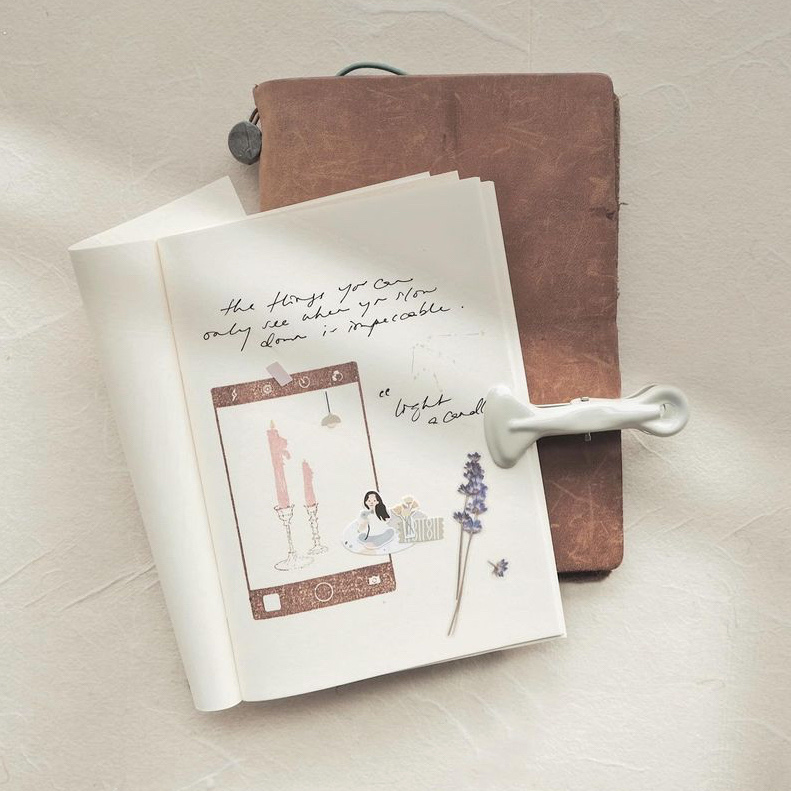 the things you can
only see when you slow
down is impeccable.
"light
a candl